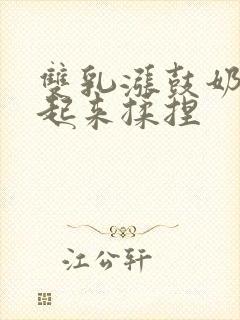 雙乳漲鼓奶
起来揉捏
江公轩